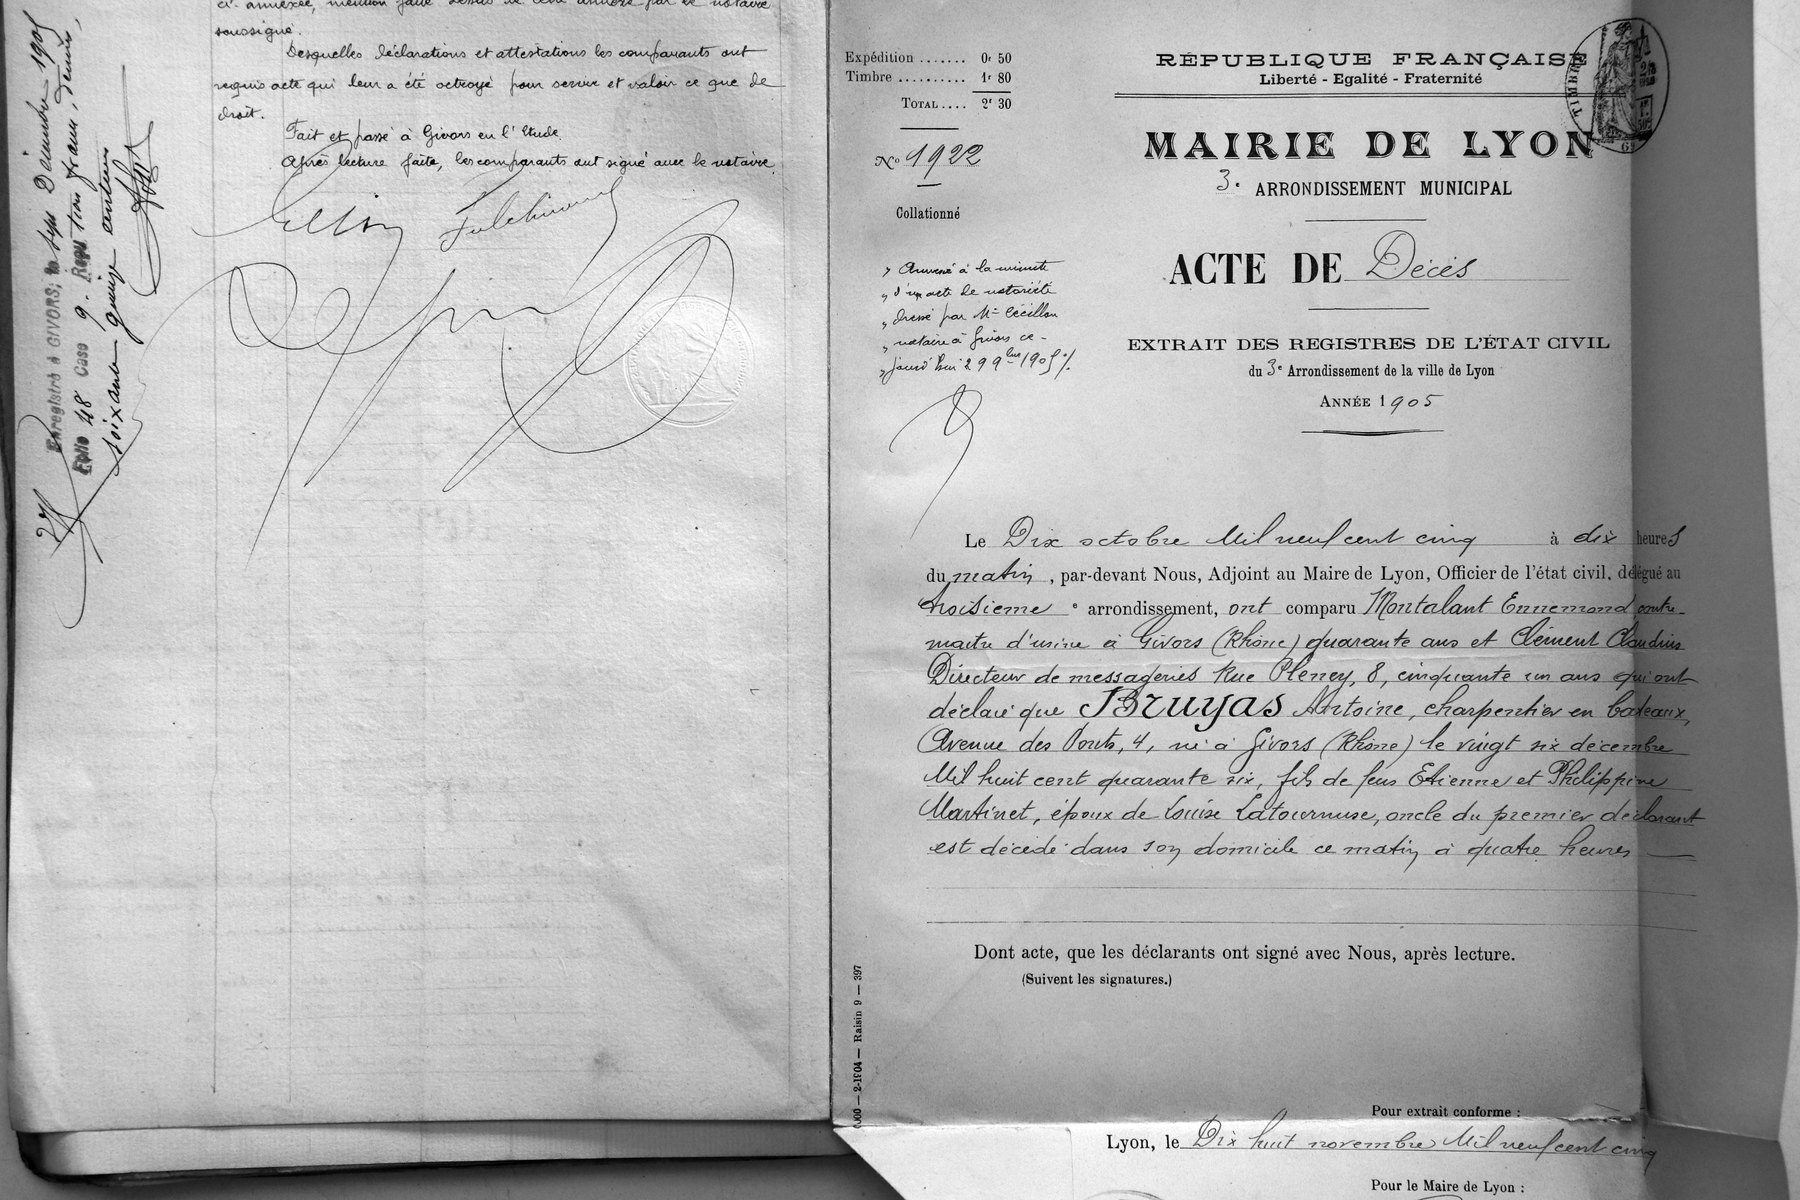 ci-annexée, mention faite dessus de cette annexe par le notaire
soussigné.
Desquelles déclarations et attestations les comparants ont
requis acte qui leur a été octroyé pour servir et valoir ce que de
droit.
Fait et passé à Givors en l'Etude
Après lecture faite, les comparants ont signé avec le notaire.
Enregistré à GIVORS, le sept Décembre 1905
Folio 48 Case 9. Reçu trois francs, décimes,
soixante quinze centimes
Expédition ....... 0f 50
Timbre .......... 1f 80
TOTAL .... 2f 30
No 1922
Collationné
» Annexé à la minute
» d'un acte de notoriété
» dressé par Me Cécillon
» notaire à Givors ce
» jourd'hui 29 9bre 1905 ./.
RÉPUBLIQUE FRANÇAISE
Liberté - Egalité - Fraternité
TIMBRE
MAIRIE DE LYON
3e ARRONDISSEMENT MUNICIPAL
ACTE DE Décès
EXTRAIT DES REGISTRES DE L'ÉTAT CIVIL
du 3e Arrondissement de la ville de Lyon
ANNÉE 1905
Le Dix octobre Mil neuf cent cinq à dix heures
du matin, par-devant Nous, Adjoint au Maire de Lyon, Officier de l'état civil, délégué au
troisieme e arrondissement, ont comparu Montalant Ennemond contre-
maitre d'usine à Givors (Rhône) quarante ans et Clément Claudius
Directeur de messageries Rue Pleney, 8, cinquante un ans qui ont
déclaré que Bruyas Antoine, charpentier en bateaux,
Avenue des Ponts, 4, né à Givors (Rhône) le vingt six décembre
Mil huit cent quarante six, fils de feus Etienne et Philippine
Martinet, époux de Louise Latournuse, oncle du premier déclarant
est décédé dans son domicile ce matin à quatre heures
Dont acte, que les déclarants ont signé avec Nous, après lecture.
(Suivent les signatures.)
2-1904 — Raisin 9 — 397
Pour extrait conforme :
Lyon, le Dix huit novembre Mil neuf cent cinq
Pour le Maire de Lyon :